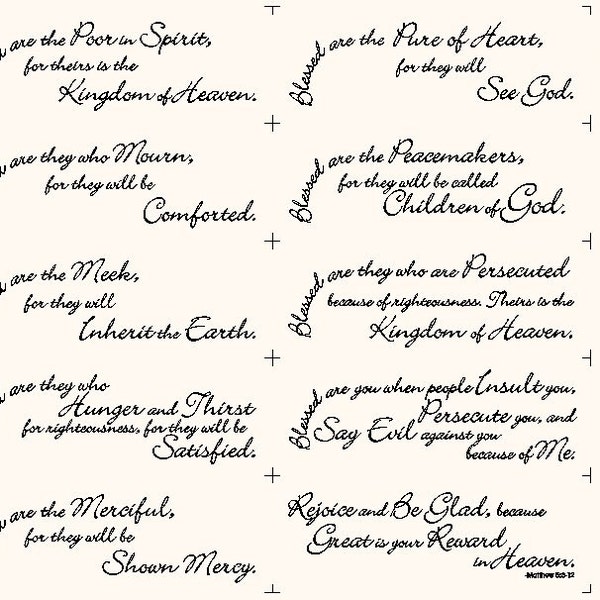 are the Poor in Spirit,
for theirs is the
Kingdom of Heaven.
are they who Mourn,
for they will be
Comforted.
are the Meek,
for they will
Inherit the Earth.
are they who
Hunger and Thirst
for righteousness, for they will be
Satisfied.
are the Merciful,
for they will be
Shown Mercy.
Blessed are the Pure of Heart,
for they will
See God.
Blessed are the Peacemakers,
for they will be called
Children of God.
Blessed are they who are Persecuted
because of righteousness. Theirs is the
Kingdom of Heaven.
Blessed are you when people Insult you,
Persecute you, and
Say Evil against you
because of Me.
Rejoice and Be Glad, because
Great is your Reward
in Heaven.
-Matthew 5:3-12